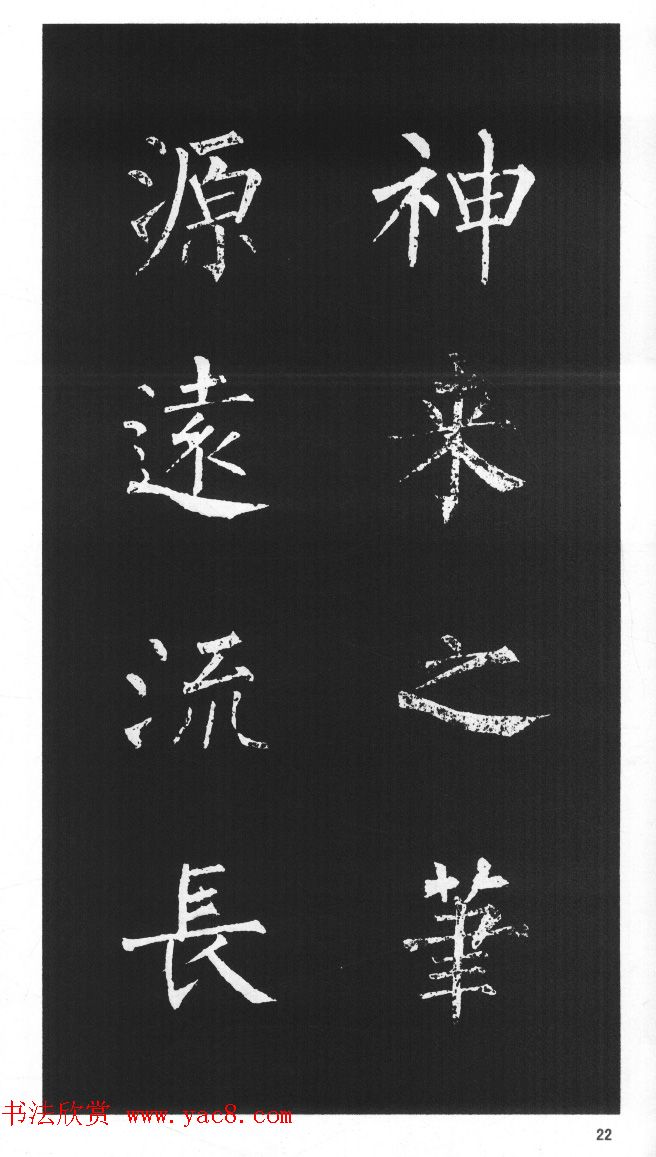 神来之筆
源遠流長
书法欣赏 www.yac8.com
22